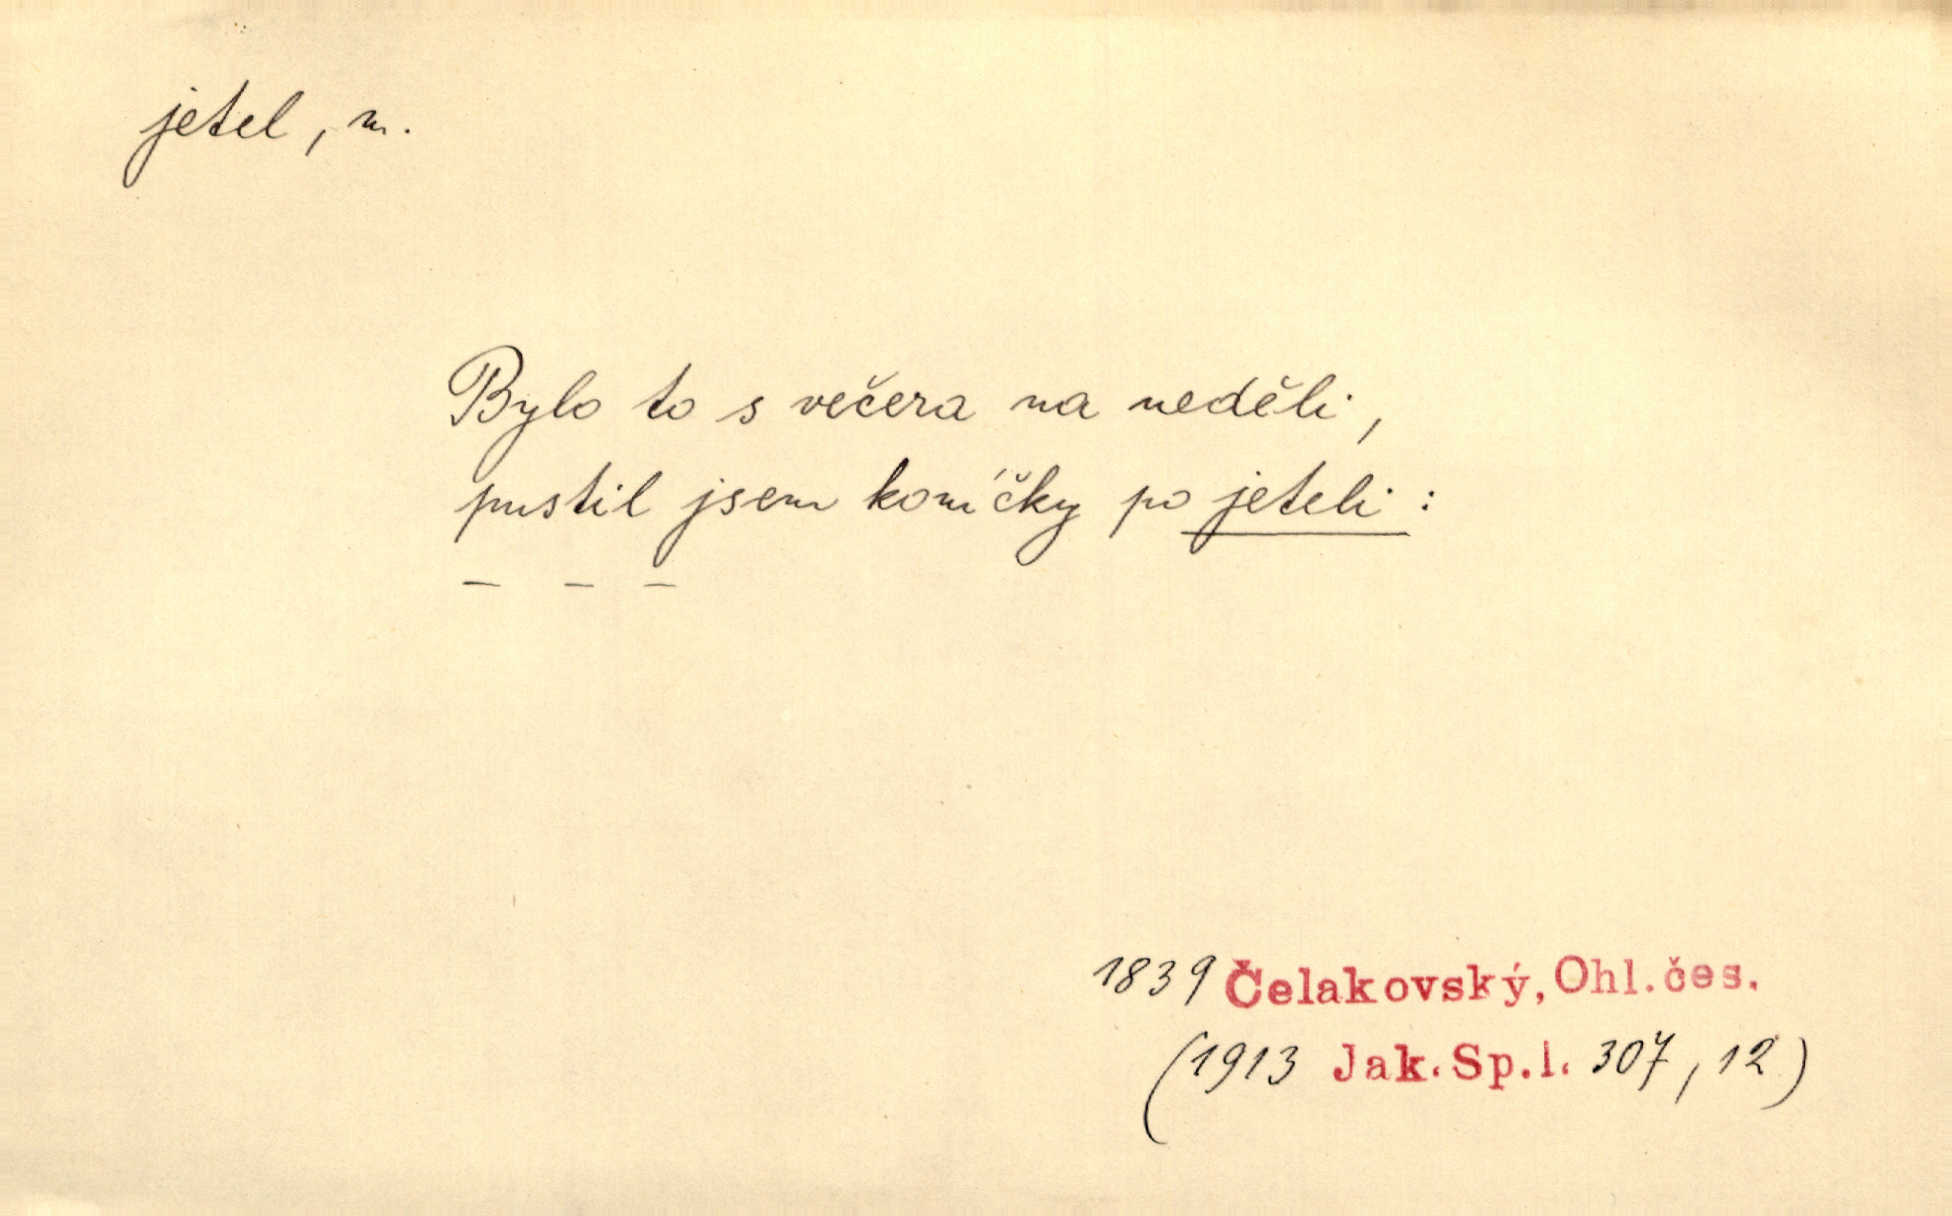 jetel, m.
Bylo to s večera na neděli,
pustil jsem koníčky po jeteli:
— — —
1839 Čelakovský, Ohl. čes.
(1913 Jak. Sp. l. 307, 12)